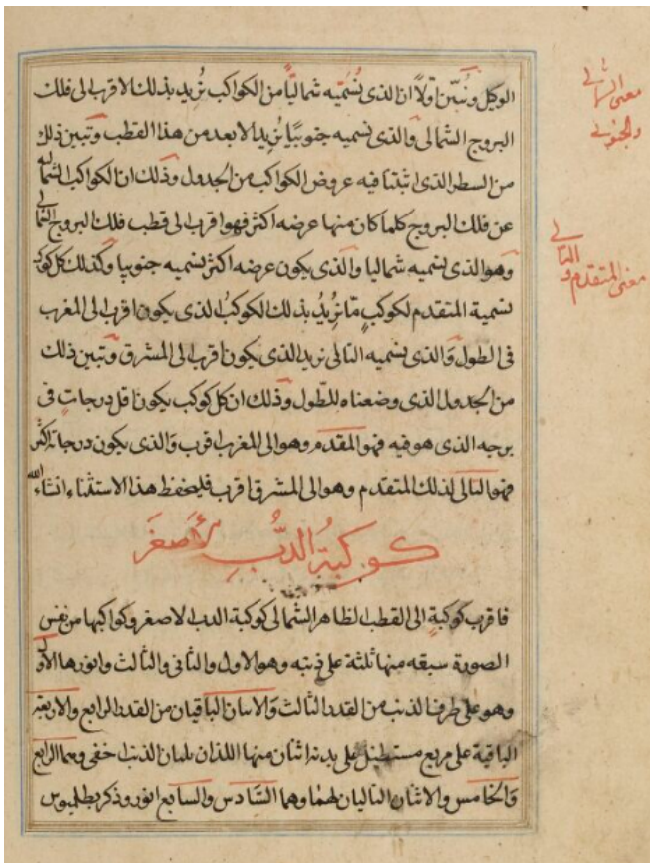 الوكيل ونبيّن اوّلاً ان الذى نسميه شماليّاً من الكواكب نريد بذلك الاقرب الى فلك
البروج الشمالى والذى نسميه جنوبيّا نريد الابعد من هذا القطب وتبين ذلك
من السطر الذى اثبتنا فيه عروض الكواكب من الجدول وذلك ان الكواكب الشماليه
عن فلك البروج كلما كان منها عرضه اكثر فهو اقرب الى قطب فلك البروج الشمالى
وهو الذى نسميه شماليا والذى يكون عرضه اكثر نسميه جنوبيا وكذلك كل كوكب
نسمية المتقدم لكوكبٍ مّا نريدُ بذلك الكوكبُ الذى يكون اقرب الى المغرب
فى الطول وَالذى نسميه التالى نريد الذى يكون اقرب الى المشرق وتبين ذلك
من الجدول الذى وضعناه للطّول وذلك ان كل كوكب يكون اقل درجاتٍ فى
برجه الذى هو فيه فهو المقدم وهو الى المغرب اقرب وَالذى يكون درجاته اكثر
فهو التالى لذلك المتقدم وهو الى المشرق اقرب فليحفظ هذا الاستثناء انشاء الله
كوكبةُ الدبُّ الأَصغَر
فاقرب كوكبةٍ الى القطب الظاهر الشمالى كوكبة الدب الاصغر وكواكبها من نفس
الصورة سبعه منها ثلثة على ذنبه وهو الاول والثانى والثالث وانورها الاول
وهو على طرف الذنب من القدر الثالث وَالاثنان الباقيان من القدر الرابع والاربعة
الباقية على مربع مستطيل على بدنه اثنان منها اللذان يليان الذنب اخفى وهما الرابع
وَالخامس والاثنان التاليان لهما وهما السّادس والسابع انور وذكر بطلميوس
معنى الشمالى
والجنوبى
معنى المتقدم والتالى